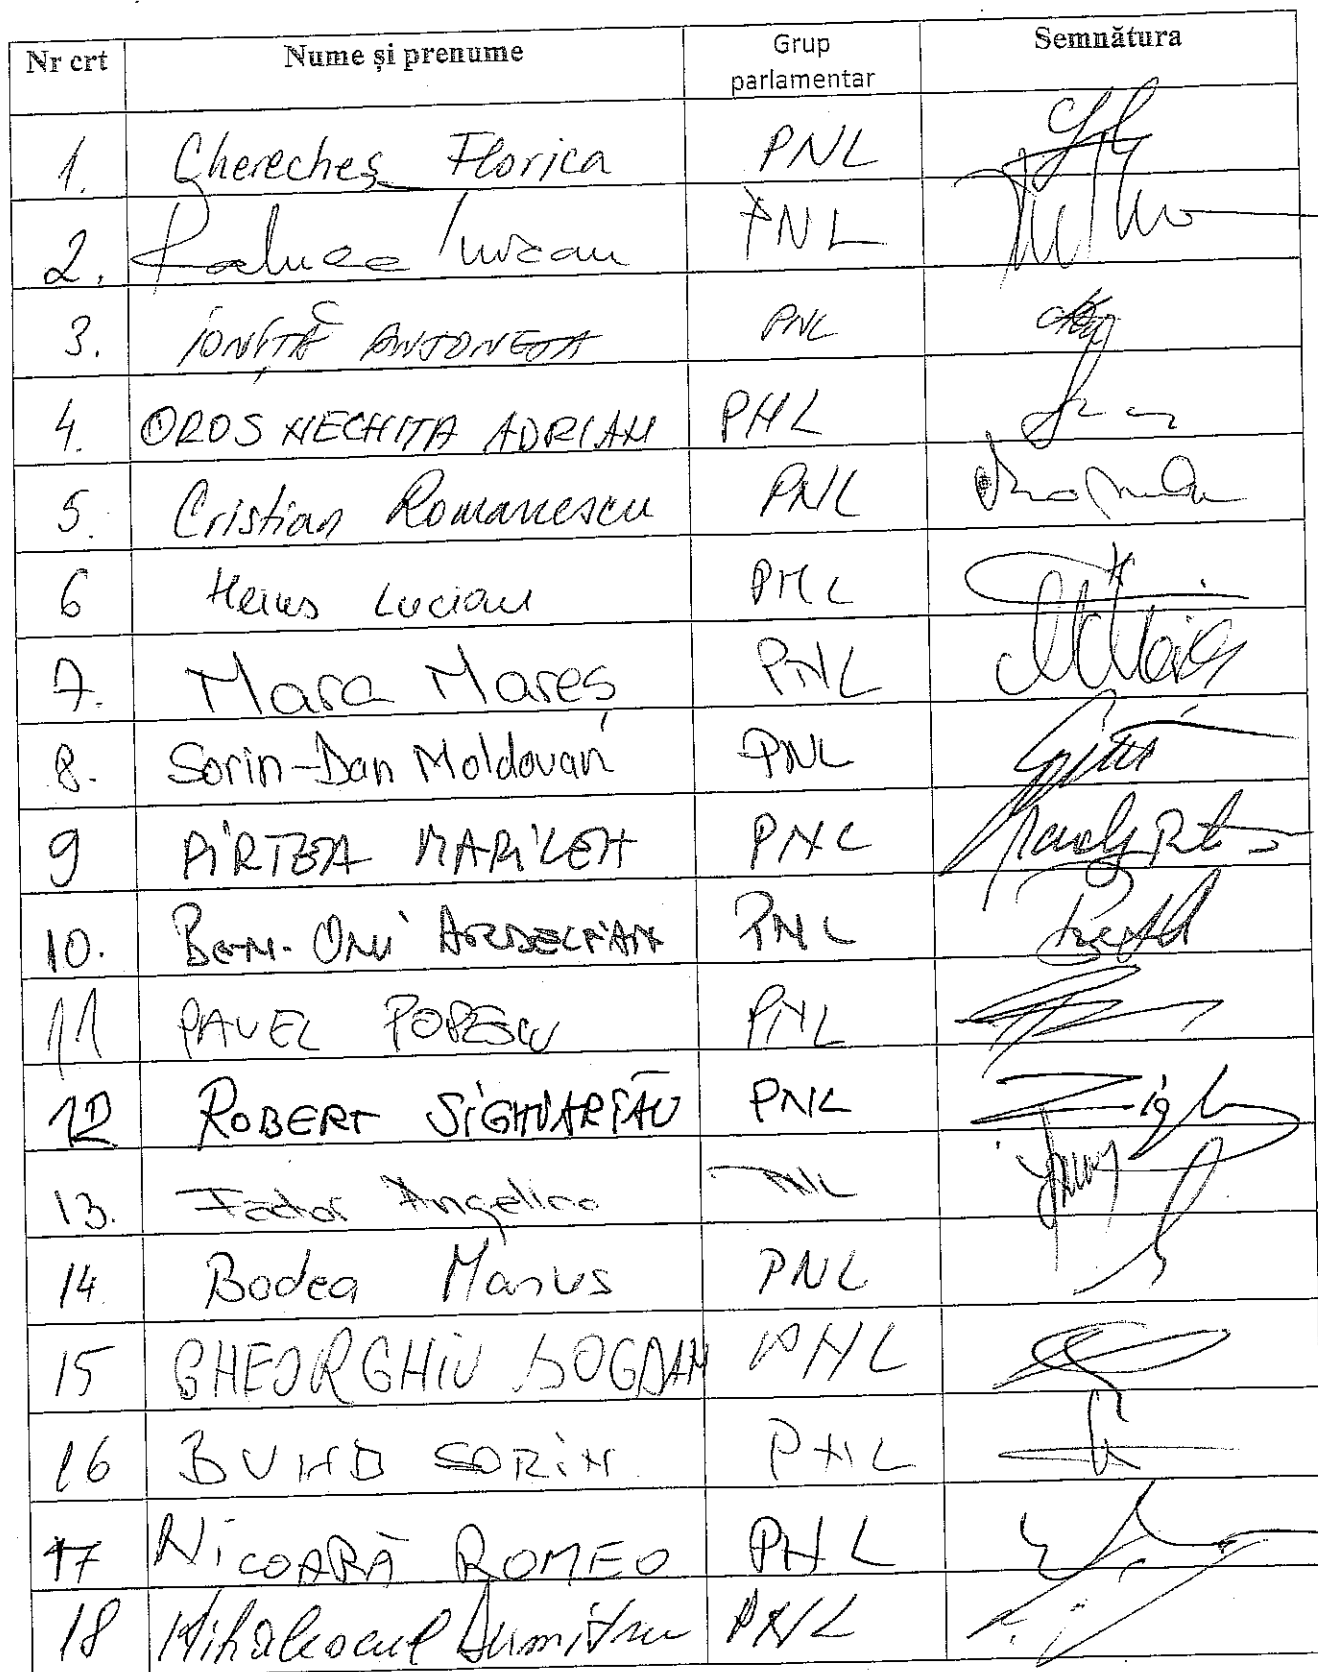 Nr crt Nume și prenume Grup parlamentar Semnătura
1. Cherecheș Florica PNL
2. Raluca Turcan PNL
3. IONIȚĂ ANTONETA PNL
4. OROS NECHITA ADRIAN PNL
5. Cristian Romanescu PNL
6 Heius Lucian PNL
7. Mara Mareș PNL
8. Sorin-Dan Moldovan PNL
9 PÎRTEA MARILEN PNL
10. BEN-ONI ARDELEAN PNL
11 PAVEL POPESCU PNL
12 ROBERT SIGHIARTĂU PNL
13. Fador Angelica PNL
14 Bodea Marius PNL
15 GHEORGHIU BOGDAN PNL
16 BUMB SORIN PNL
17 NICOARĂ ROMEO PNL
18 Mihalescul Dumitru PNL